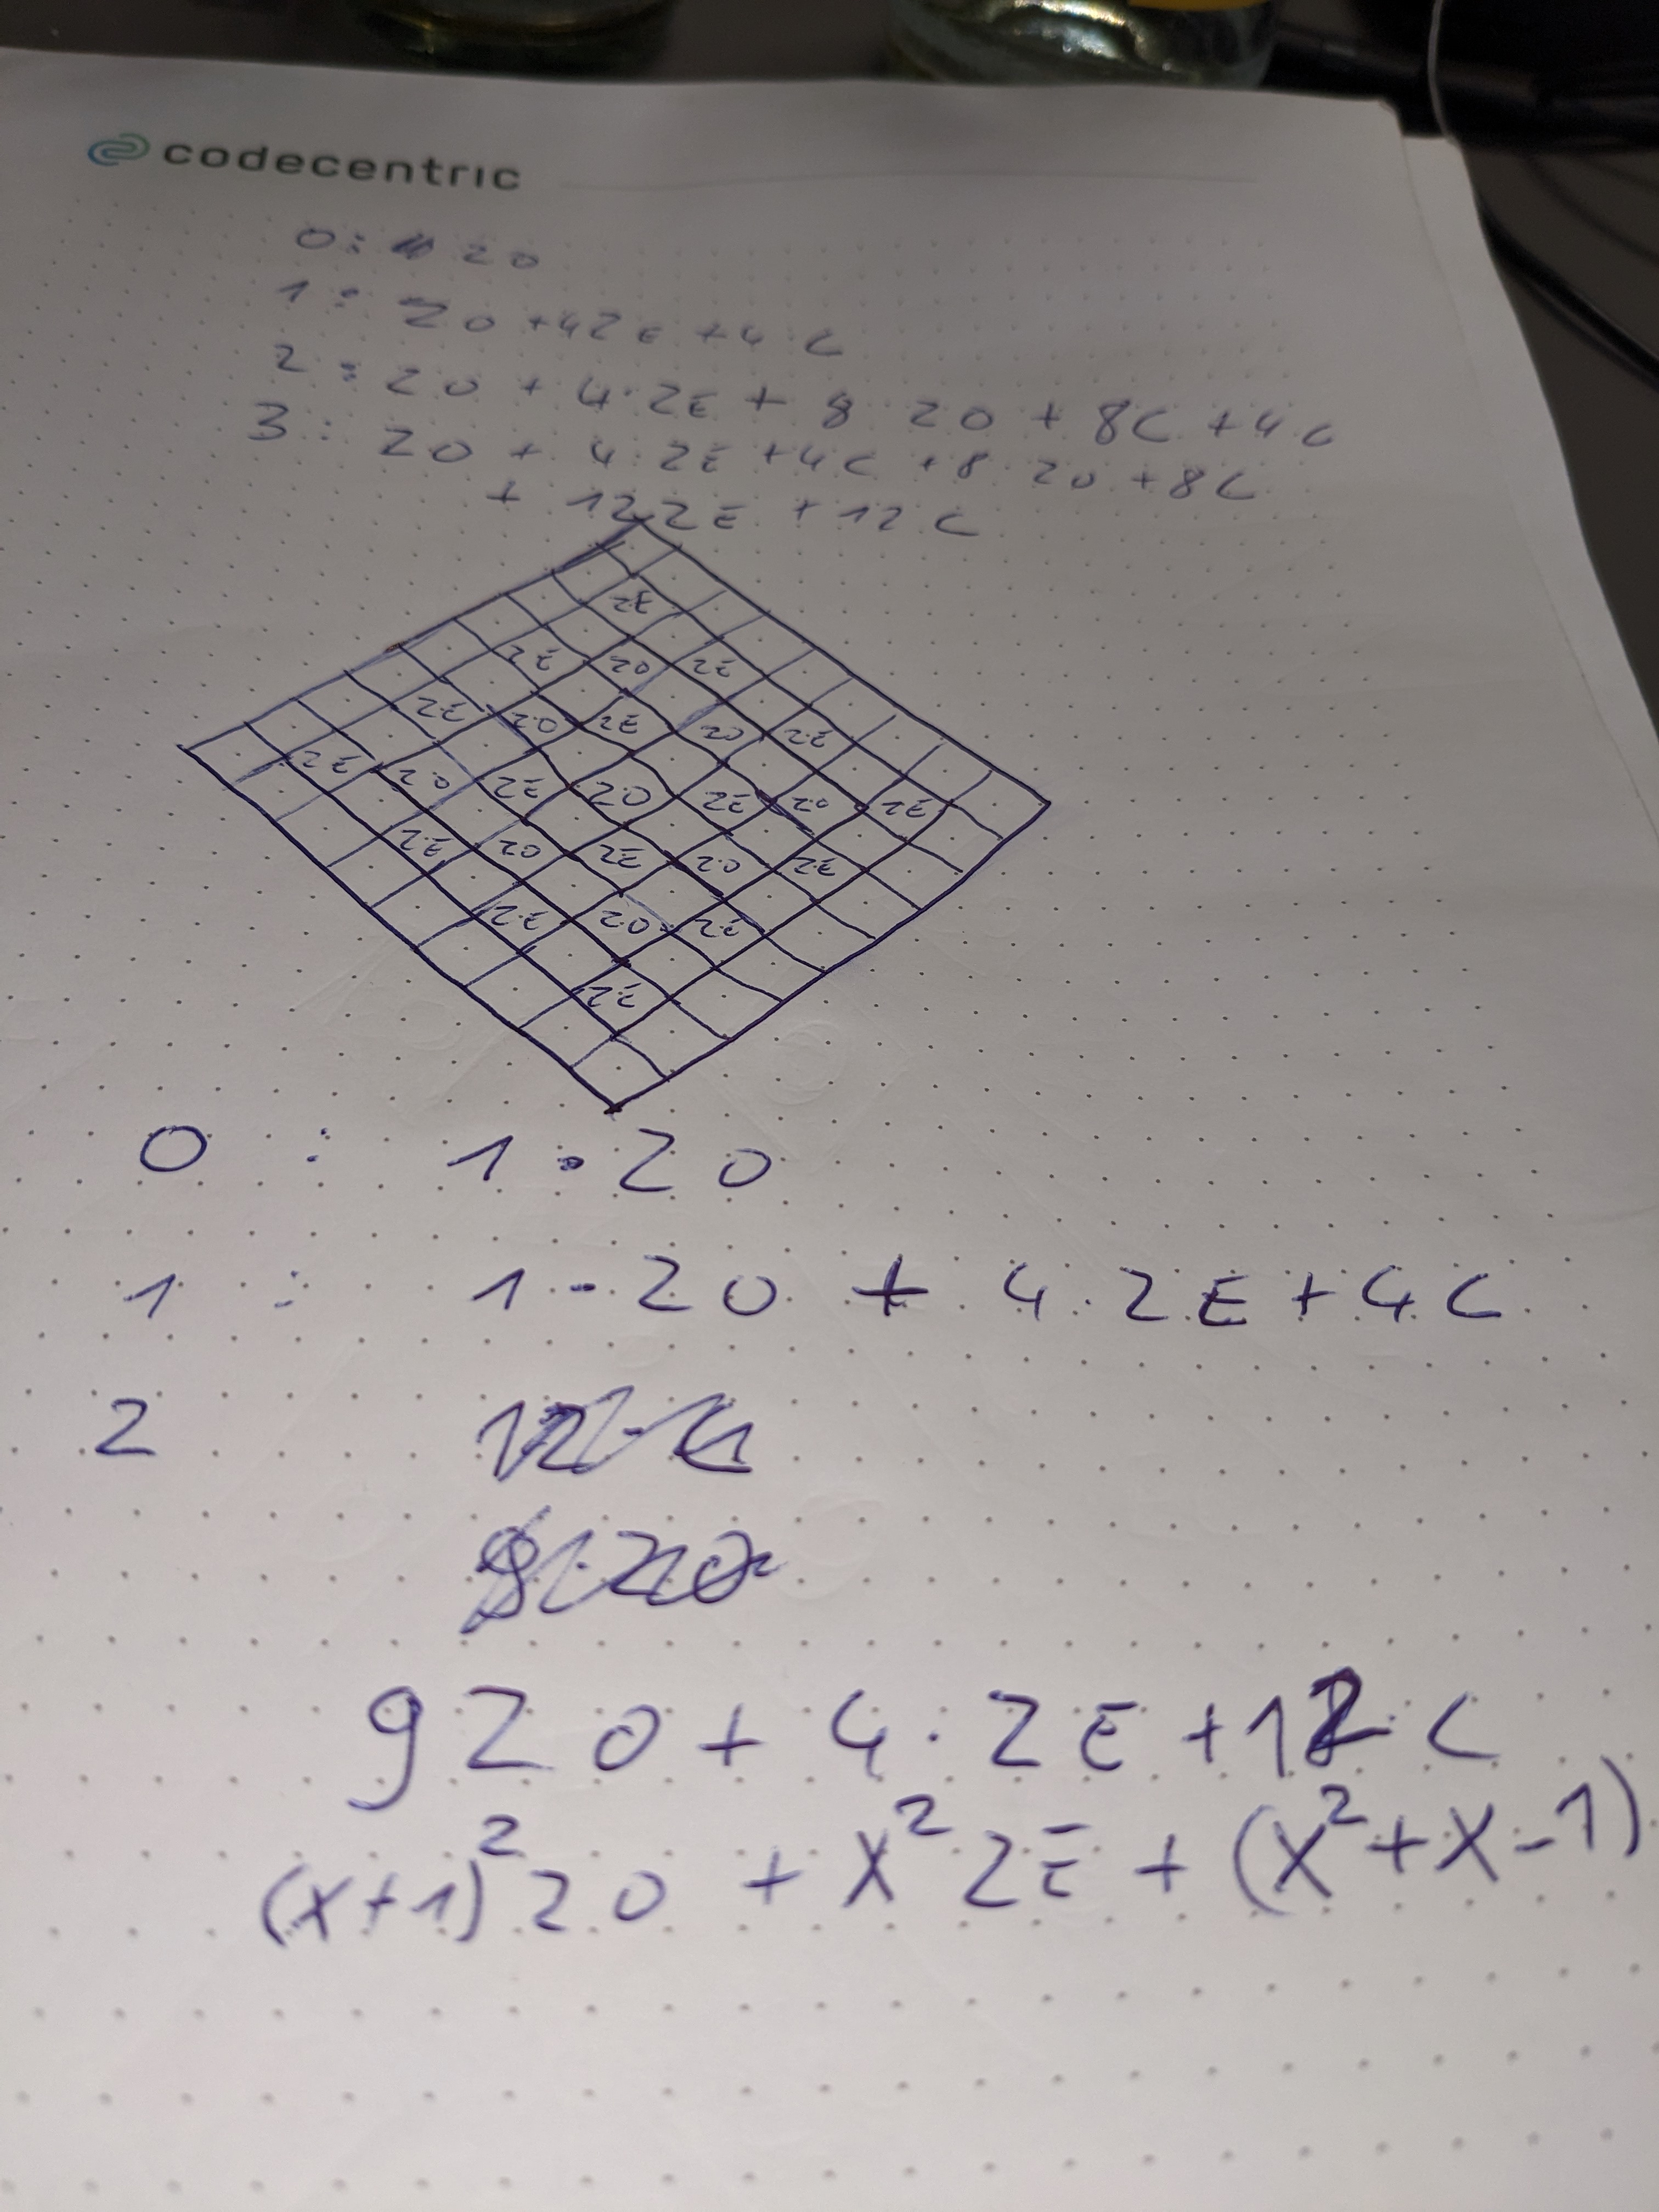 codecentric
0: ZO
1: ZO + 4ZE + 4 C
2: ZO + 4·ZE + 8 ZO + 8C + 4C
3: ZO + 4·ZE + 4C + 8 ZO + 8C
+ 12 ZE + 12 C
ZE
ZE ZO ZE
ZE ZO ZE ZO ZE
ZE ZO ZE ZO ZE ZO ZE
ZE ZO ZE ZO ZE
ZE ZO ZE
ZE
0: 1·ZO
1: 1·ZO + 4·ZE + 4C
2
9 ZO + 4·ZE + 12 C
(x+1)² ZO + x² ZE + (x²+x-1)